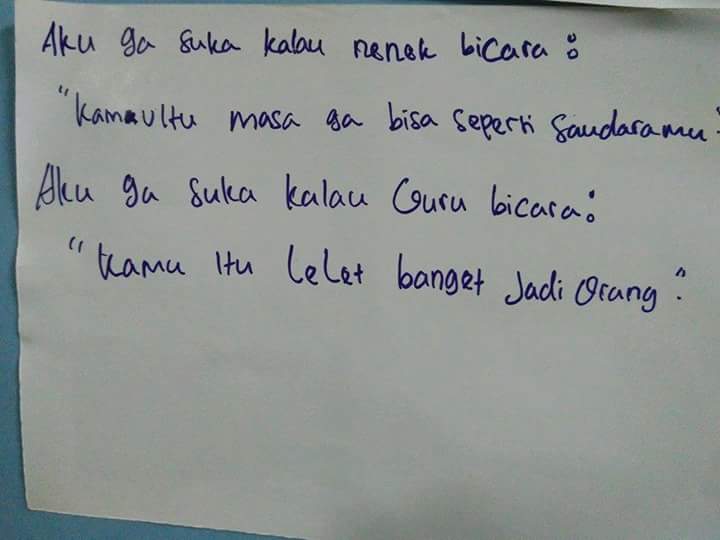 Aku ga suka kalau nenek bicara :
"Kamu Itu masa ga bisa seperti Saudaramu"
Aku ga suka kalau Guru bicara :
"Kamu Itu Lelet banget Jadi Orang".